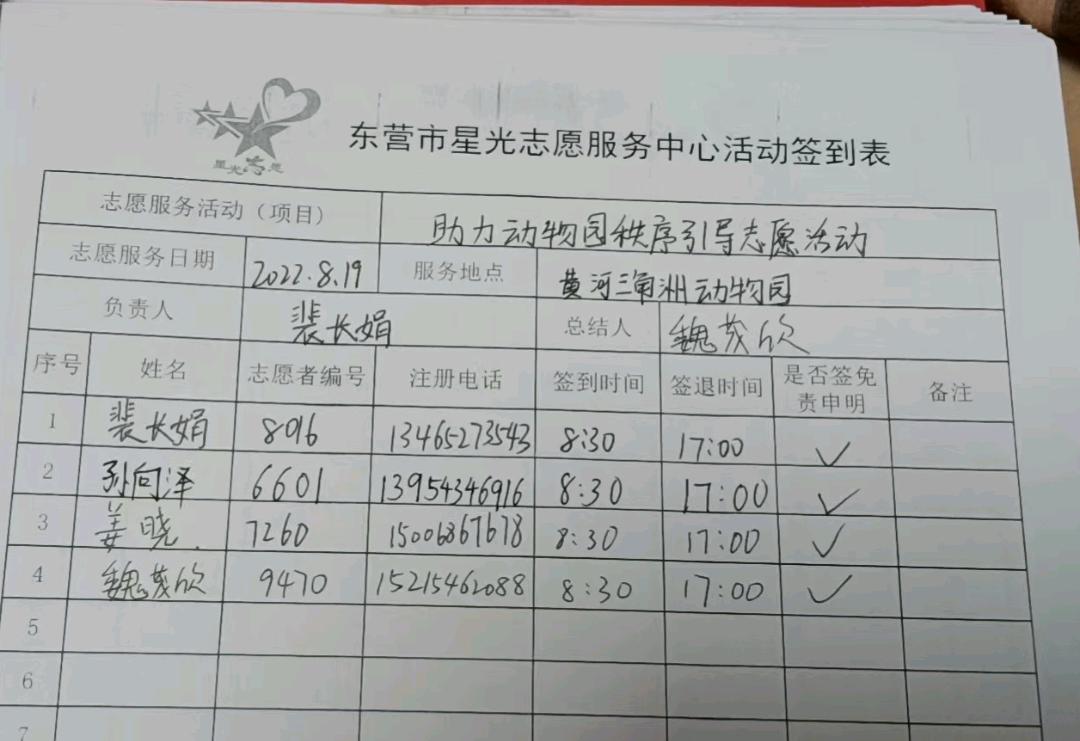 星光志愿
东营市星光志愿服务中心活动签到表
志愿服务活动（项目） 助力动物园秩序引导志愿活动
志愿服务日期 2022.8.19 服务地点 黄河三角洲动物园
负责人 裴长娟 总结人 魏茂欣
序号 姓名 志愿者编号 注册电话 签到时间 签退时间 是否签免责申明 备注
1 裴长娟 8096 13465273543 8:30 17:00 ✓
2 孙向泽 6601 13954346916 8:30 17:00 ✓
3 姜晓 7260 15006867678 8:30 17:00 ✓
4 魏茂欣 9470 15215462088 8:30 17:00 ✓
5
6
7